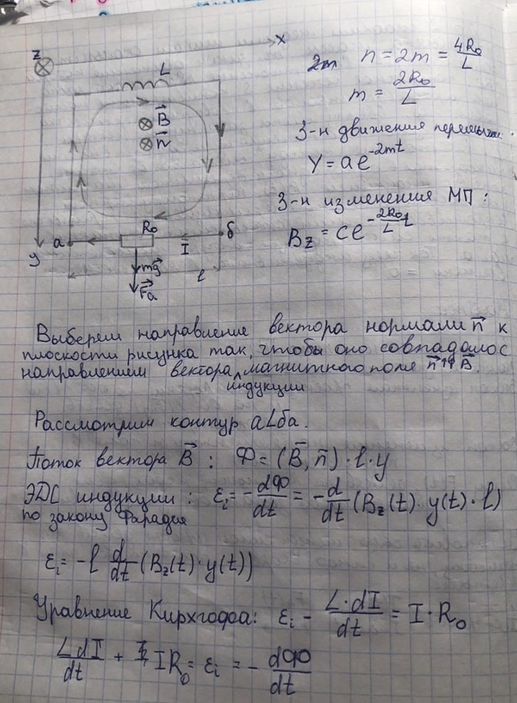 z
x
L
B⃗
n⃗
R₀
а
б
I
y
mg⃗
F⃗a
l
2m n = 2m = 4R₀/L
m = 2R₀/L
З-н движения перемыч.
Y = ae^(-2mt)
З-н изменения МП:
Bz = ce^(-2R₀/L t)
Выберем направление вектора нормали n⃗ к
плоскости рисунка так, чтобы оно совпадало с
направлением вектора магнитного поле n⃗↑↑B⃗.
индукции
Рассмотрим контур aLбa.
Поток вектора B⃗ : Ф = (B⃗, n⃗) · l · y
ЭДС индукции : εi = -dФ/dt = -d/dt (Bz(t) · y(t) · l)
по закону Фарадея
εi = -l d/dt (Bz(t) · y(t))
Уравнение Кирхгофа: εi - L·dI/dt = I · R₀
LdI/dt + IR₀ = εi = -dФ/dt